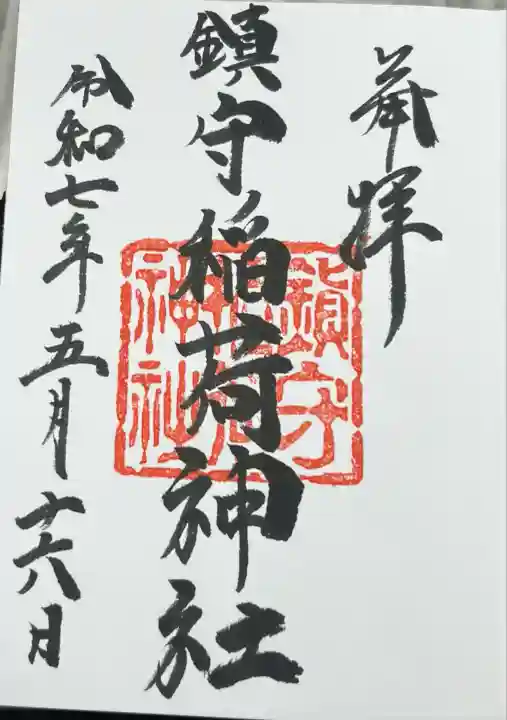 奉拝
鎮守稲荷神社
鎮守
稲荷
神社
令和七年五月十六日